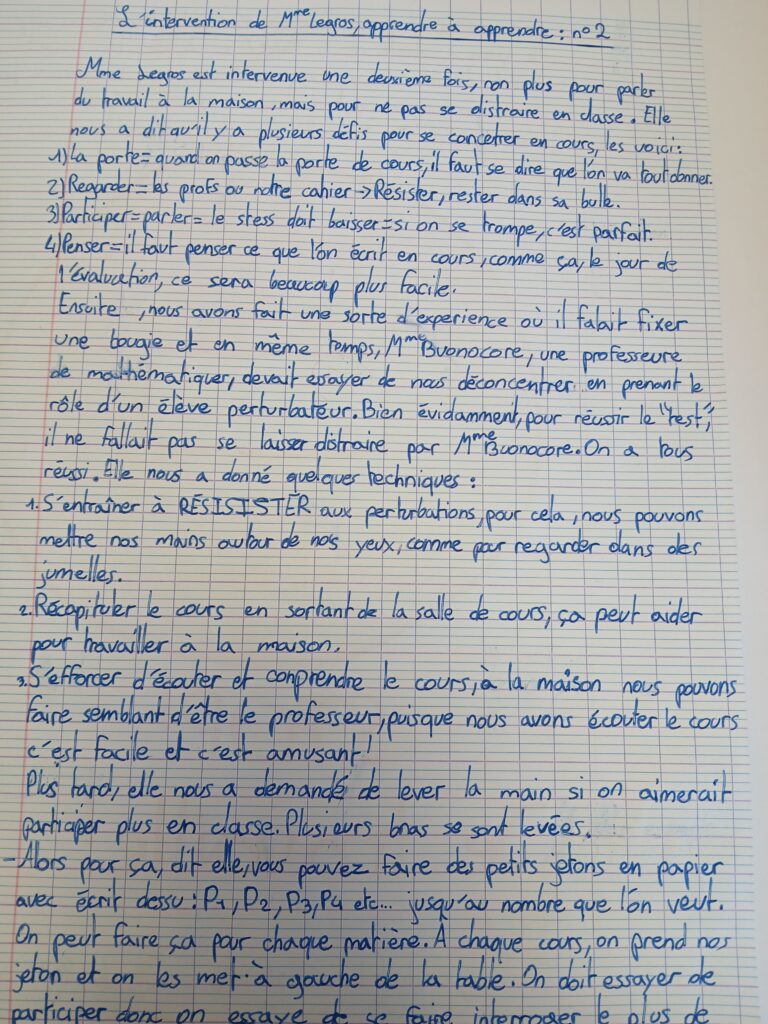 L'intervention de Mme Legros, apprendre à apprendre : n°2
Mme Legros est intervenue une deuxième fois, non plus pour parler
du travail à la maison, mais pour ne pas se distraire en classe. Elle
nous a dit qu'il y a plusieurs défis pour se concetrer en cours, les voici:
1) La porte = quand on passe la porte de cours, il faut se dire que l'on va tout donner.
2) Regarder = les profs ou notre cahier → Résister, rester dans sa bulle.
3) Participer = parler = le stess doit baisser = si on se trompe, c'est parfait.
4) Penser = il faut penser ce que l'on écrit en cours, comme ça, le jour de
l'évaluation, ce sera beaucoup plus facile.
Ensuite, nous avons fait une sorte d'experience où il falait fixer
une bougie et en même temps, Mme Buonocore, une professeure
de mathématiques, devait essayer de nous déconcentrer en prenant le
rôle d'un élève perturbateur. Bien évidamment, pour réussir le "test",
il ne fallait pas se laisser distraire par Mme Buonocore. On a tous
réussi. Elle nous a donné quelques techniques :
1. S'entraîner à RÉSISISTER aux perturbations, pour cela, nous pouvons
mettre nos mains autour de nos yeux, comme pour regarder dans des
jumelles.
2. Récapituler le cours en sortant de la salle de cours, ça peut aider
pour travailler à la maison.
3. S'efforcer d'écouter et conprendre le cours, à la maison nous pouvons
faire semblant d'être le professeur, puisque nous avons écouter le cours
c'est facile et c'est amusant!
Plus tard, elle nous a demandé de lever la main si on aimerait
participer plus en classe. Plusieurs bras se sont levées.
- Alors pour ça, dit elle, vous pouvez faire des petits jetons en papier
avec écrit dessu : P1, P2, P3, P4 etc... jusqu'au nombre que l'on veut.
On peut faire ça pour chaque matière. À chaque cours, on prend nos
jeton et on les met à gauche de la table. On doit essayer de
participer donc on essaye de se faire interroger le plus de